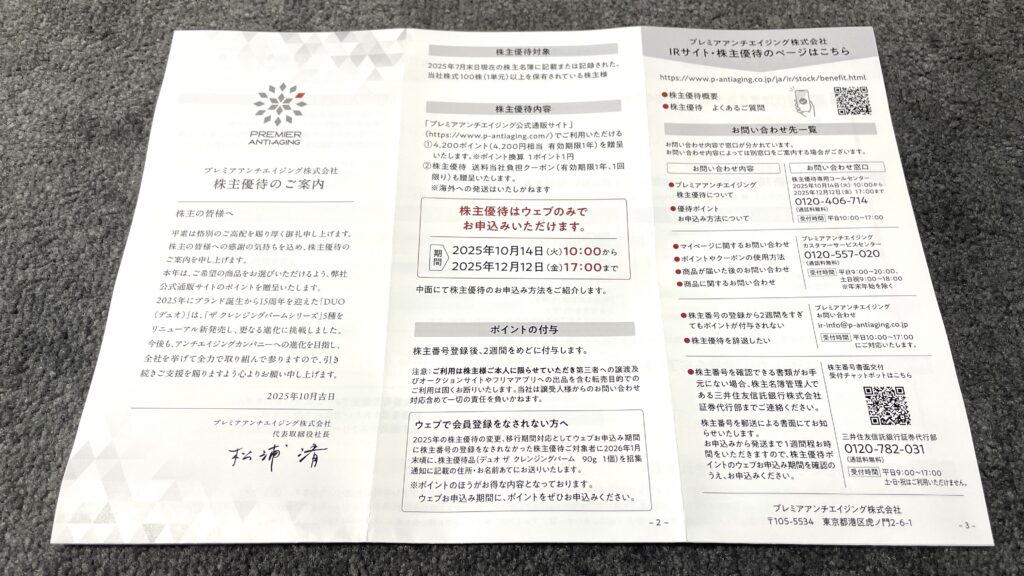 PREMIER
ANTI-AGING
プレミアアンチエイジング株式会社
株主優待のご案内
株主の皆様へ
平素は格別のご高配を賜り厚く御礼申し上げます。
株主の皆様への感謝の気持ちを込め、株主優待の
ご案内を申し上げます。
本年は、ご希望の商品をお選びいただけるよう、弊社
公式通販サイトのポイントを贈呈いたします。
2025年にブランド誕生から15周年を迎えた「DUO
(デュオ)」は、「ザ クレンジングバームシリーズ」5種を
リニューアル新発売し、更なる進化に挑戦しました。
今後も、アンチエイジングカンパニーへの進化を目指し、
全社を挙げて全力で取り組んで参りますので、引き
続きご支援を賜りますよう心よりお願い申し上げます。
2025年10月吉日
プレミアアンチエイジング株式会社
代表取締役社長
松浦 清
株主優待対象
2025年7月末日現在の株主名簿に記載または記録された、
当社株式100株(1単元)以上を保有されている株主様
株主優待内容
「プレミアアンチエイジング公式通販サイト」
(https://www.p-antiaging.com/)でご利用いただける
①4,200ポイント(4,200円相当 有効期限1年)を贈呈
いたします。※ポイント換算 1ポイント1円
②株主優待 送料当社負担クーポン(有効期限1年、1回
限り)も贈呈いたします。
※海外への発送はいたしかねます
株主優待はウェブのみで
お申込みいただけます。
期間
2025年10月14日(火)10:00から
2025年12月12日(金)17:00まで
中面にて株主優待のお申込み方法をご紹介します。
ポイントの付与
株主番号登録後、2週間をめどに付与します。
注意:ご利用は株主様ご本人に限らせていただき第三者への譲渡及
びオークションサイトやフリマアプリへの出品を含む転売目的での
ご利用は固くお断りいたします。当社は譲受人様からのお問い合わせ
対応含めて一切の責任を負いかねます。
ウェブで会員登録をなされない方へ
2025年の株主優待の変更、移行期間対応としてウェブお申込み期間
に株主番号の登録をなされなかった株主優待ご対象者に2026年1月
末頃に、株主優待品(デュオ ザ クレンジングバーム 90g 1個)を招集
通知に記載の住所・お名前あてにお送りいたします。
※ポイントのほうがお得な内容となっております。
ウェブお申込み期間に、ポイントをぜひお申込みください。
– 2 –
プレミアアンチエイジング株式会社
IRサイト・株主優待のページはこちら
https://www.p-antiaging.co.jp/ja/ir/stock/benefit.html
●株主優待概要
●株主優待 よくあるご質問
お問い合わせ先一覧
お問い合わせ内容で窓口が分かれています。
お問い合わせ内容によっては別窓口をご案内する場合がございます。
お問い合わせ内容
お問い合わせ窓口
●プレミアアンチエイジング
株主優待について
●優待ポイント
お申込み方法について
株主優待専用コールセンター
2025年10月14日(火)10:00から
2025年12月12日(金)17:00まで
0120-406-714
(通話料無料)
受付時間 平日10:00~17:00
●マイページに関するお問い合わせ
●ポイントやクーポンの使用方法
●商品が届いた後のお問い合わせ
●商品に関するお問い合わせ
プレミアアンチエイジング
カスタマーサービスセンター
0120-557-020
(通話料無料)
受付時間 平日9:00~20:00、
土日祝9:00~18:00
※年末年始を除く
●株主番号の登録から2週間をすぎ
てもポイントが付与されない
●株主優待を辞退したい
プレミアアンチエイジング
お問い合わせ
ir-info@p-antiaging.co.jp
受付時間 平日10:00~17:00
にご対応いたします。
●株主番号を確認できる書類がお手
元にない場合、株主名簿管理人で
ある三井住友信託銀行株式会社
証券代行部までご連絡ください。
株主番号を郵送による書面にてお知
らせいたします。
お申込みから発送まで1週間程お時
間をいただきますので、株主優待ポ
イントのウェブお申込み期間を確認の
うえ、お申込みください。
株主番号書面交付
受付チャットボットはこちら
三井住友信託銀行証券代行部
0120-782-031
(通話料無料)
受付時間 平日9:00~17:00
土・日・祝はご利用いただけません。
プレミアアンチエイジング株式会社
〒105-5534 東京都港区虎ノ門2-6-1
– 3 –